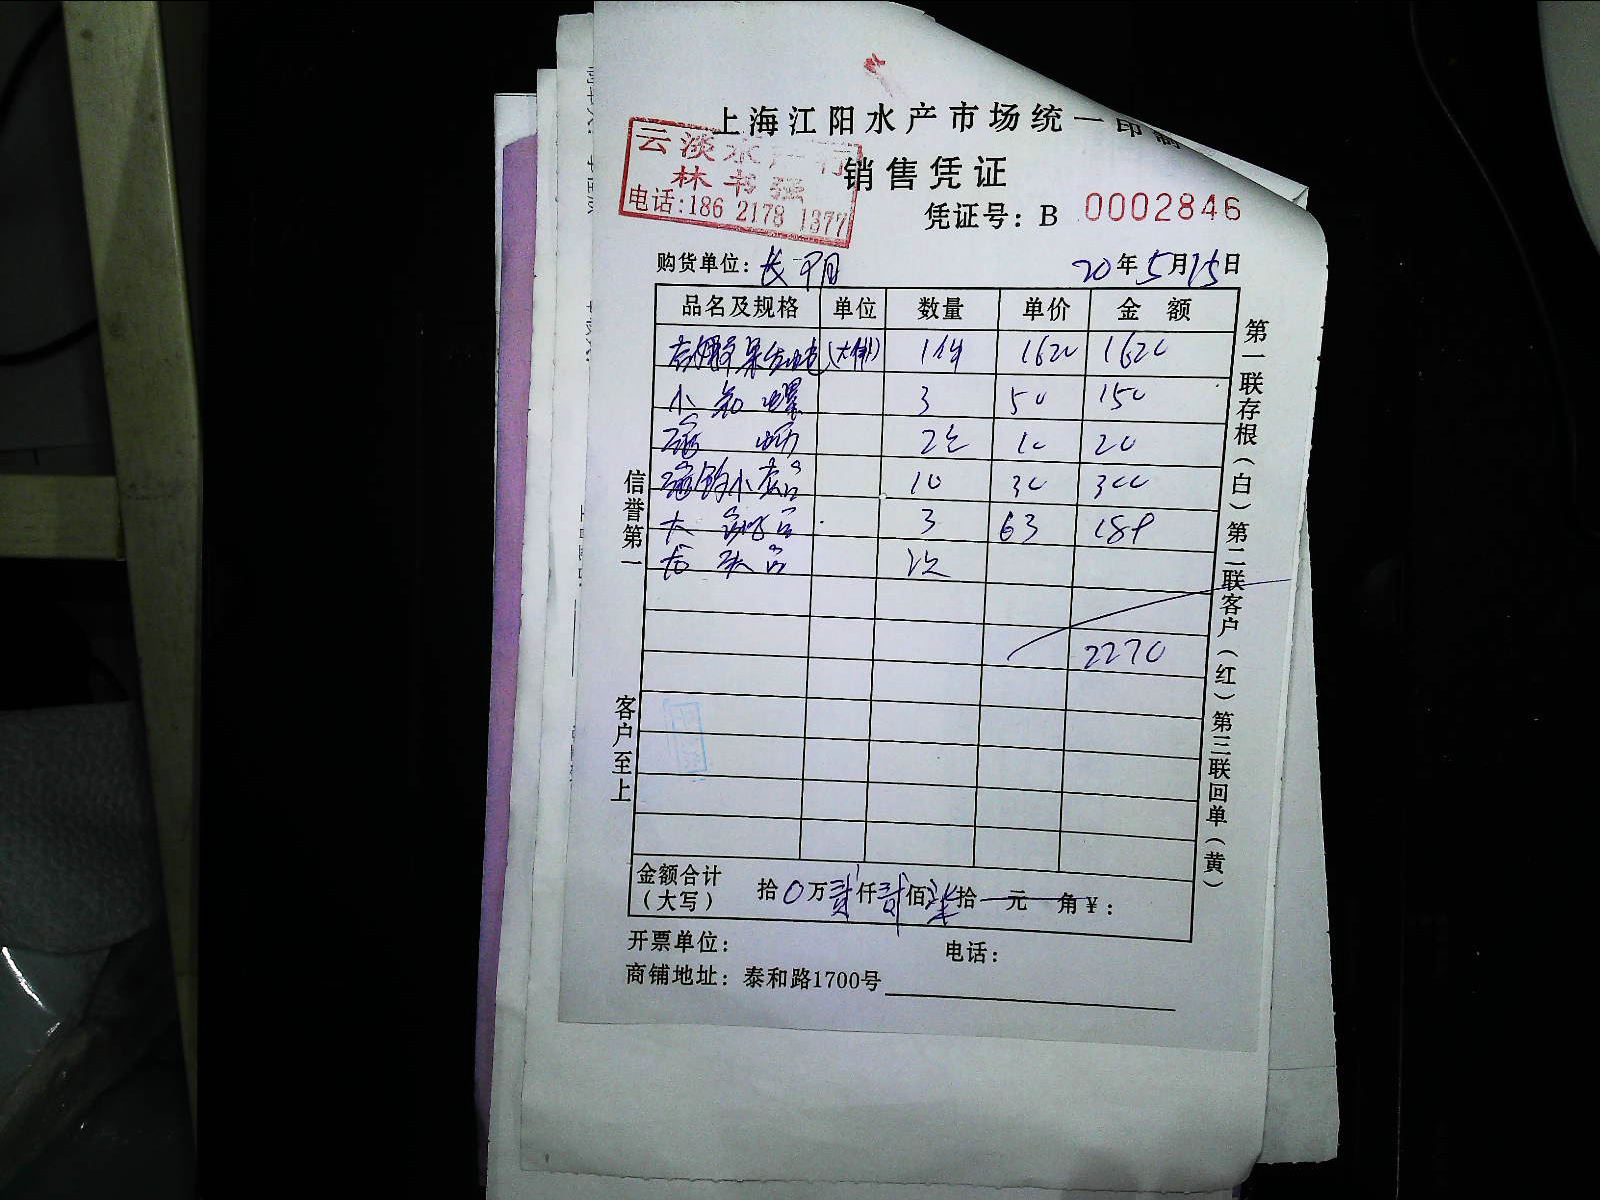 上海江阳水产市场统一印制
云淡水产行
林书强
电话:186 2178 1377
销售凭证
凭证号：B 0002846
购货单位：长
20年5月15日
品名及规格 单位 数量 单价 金额
1件 1620 1620
小 螺 3 50 150
10 20
小 10 30 300
大 3 63 189
次
2270
金额合计（大写） 拾0万贰仟贰佰柒拾 元 角￥：
开票单位： 电话：
商铺地址：泰和路1700号
信誉第一
客户至上
第一联存根（白）第二联客户（红）第三联回单（黄）